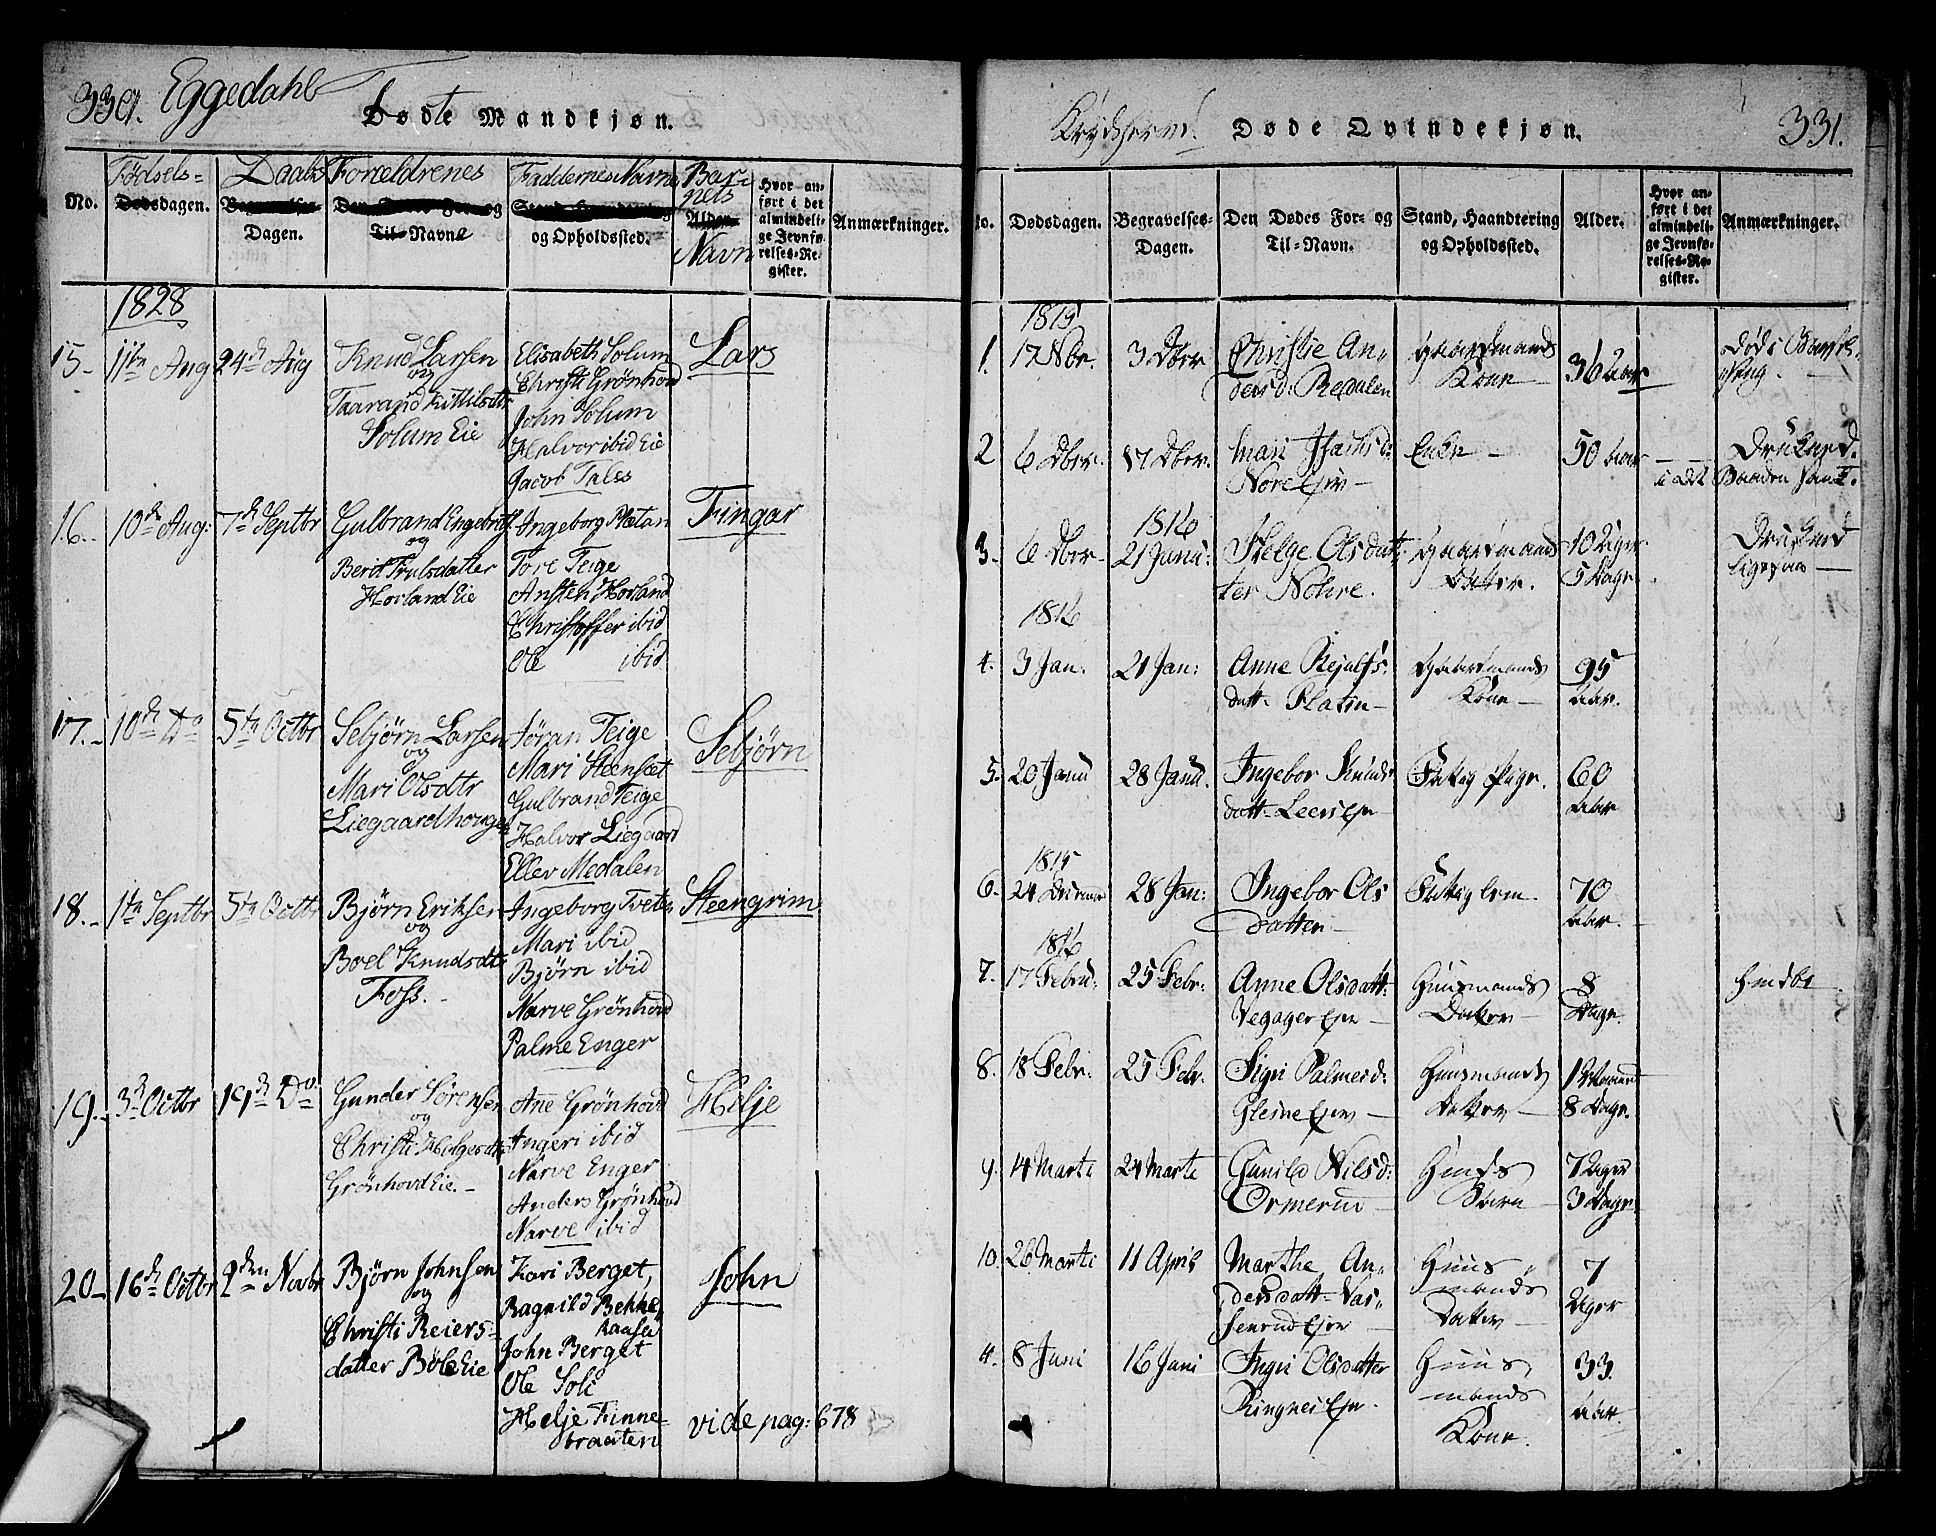 330. Eggedahl
Födte Mandkjøn.
No.
Födsels=
Dødsdagen.
Daabs
Begravelses-
Dagen.
Forældrenes
Den Dødes For= og
Til=Navne
Faddernes Navne
Stand, Haandtering
og Opholdssted.
Bar-
nets
Alder.
Navn
Hvor an-
ført i det
almindeli-
ge Jevnfø-
relses=Re-
gister.
Anmærkninger.
1828
15- 11te Aug 24de Aug
Knud Larsen
og
Taarand Kittilsdtr
Solum Eie
Elisabeth Solum
Christi Grönhovd
John Solum
Halvor ibid Eie
Jacob Tales
Lars
16.- 10de Aug: 7de Septbr
Gulbrand Engebretss
og
Berit Trulsdatter
Horland Eie
Ingeborg Platan
Tore Teige
Ansten Horland
Christoffer ibid
Ole ibid
Fingar
17.- 10de Do 5te Octbr
Sebjörn Larsen
og
Mari Olsdtr
Liegaardhouge
Jöran Teige
Mari Steenset
Gulbrand Teige
Halvor Liegaard
Ellev Medalen
Sebjörn
18.- 1te Septbr 5te Octbr
Bjørn Eriksen
og
Boel Knudsdtr
Foss.-
Ingeborg Tveten
Mari ibid
Bjørn ibid
Narve Grönhovd
Palme Enger
Steengrim
19.- 3de Octbr 19de Do
Gunder Sörensen
og
Christi Helgesdtr
Grönhovd Eie.-
Ane Grönhovd
Ingeri ibid
Narve Enger
Anders Grönhovd
Narve ibid
Helje
20- 16de Octbr 2den Novbr
Bjørn Johnsen
og
Christi Reiers=
datter Böle Eie
Kari Berget,
Ragnild Bekke
Raasen
John Berget
Ole Soli
Helje Finne-
braaten
John
vide pag: 678
Krydsherred. Døde Qvindekjøn. 331.
No. Dødsdagen.
Begravelses-
Dagen.
Den Dødes For= og
Til=Navn.
Stand, Haandtering
og Opholdssted.
Alder.
Hvor an-
ført i det
almindeli-
ge Jevnfø-
relses=Re-
gister.
Anmærkninger.
1815
1. 17 Nbr. 3. Dbr
Christie An,,
dersd: Bedalen
Gaardmands
Kone
36 Aar
Død i Barsel-
2 6 Dbr. 17 Dbr.
Mari
Nore Ejer -
Enke -
50 Aar
1816
3. 6 Dbr 21 Janu:
Helge Olsdat
ter Nöhre.
Gaardmands
Datter.
10 Uger
5 Dage
1816
4. 3 Jan. 21 Jan:
Anne
datt:
Gaardmands
Kone -
95
Aar.
5. 20 Janu 28 Janu.
Ingebor Knuds
datt-
Fattig Pige.
60
Aar
1815
6. 24 28 Jan:
Ingebor Ols
datter -
Fattig Lem.
70
Aar.
1816
7. 17 Febru: 25 Febr:
Anne Olsdatt:
Huusmands
Datter -
8
Dage.
8. 18 Febr. 25 Febr.
Sigri Palmesd:
Huusmands
Datter -
1 Maaned
8 Dage.
9. 14 Marti 24 Marti
Gunild Nilsd:
Ormerud -
Huus
Barn -
7 Uger
3 Dage.
10. 26 Marti 11 April
Marthe An,,
dersdatt- Vas,,
senrud Ejer -
Huus
mands
Datter
7
Uger
8 Juni 16 Juni
Ingri Olsdatter
Ringnes Ejer.
Huus
mands
Kone.
33.
Aar